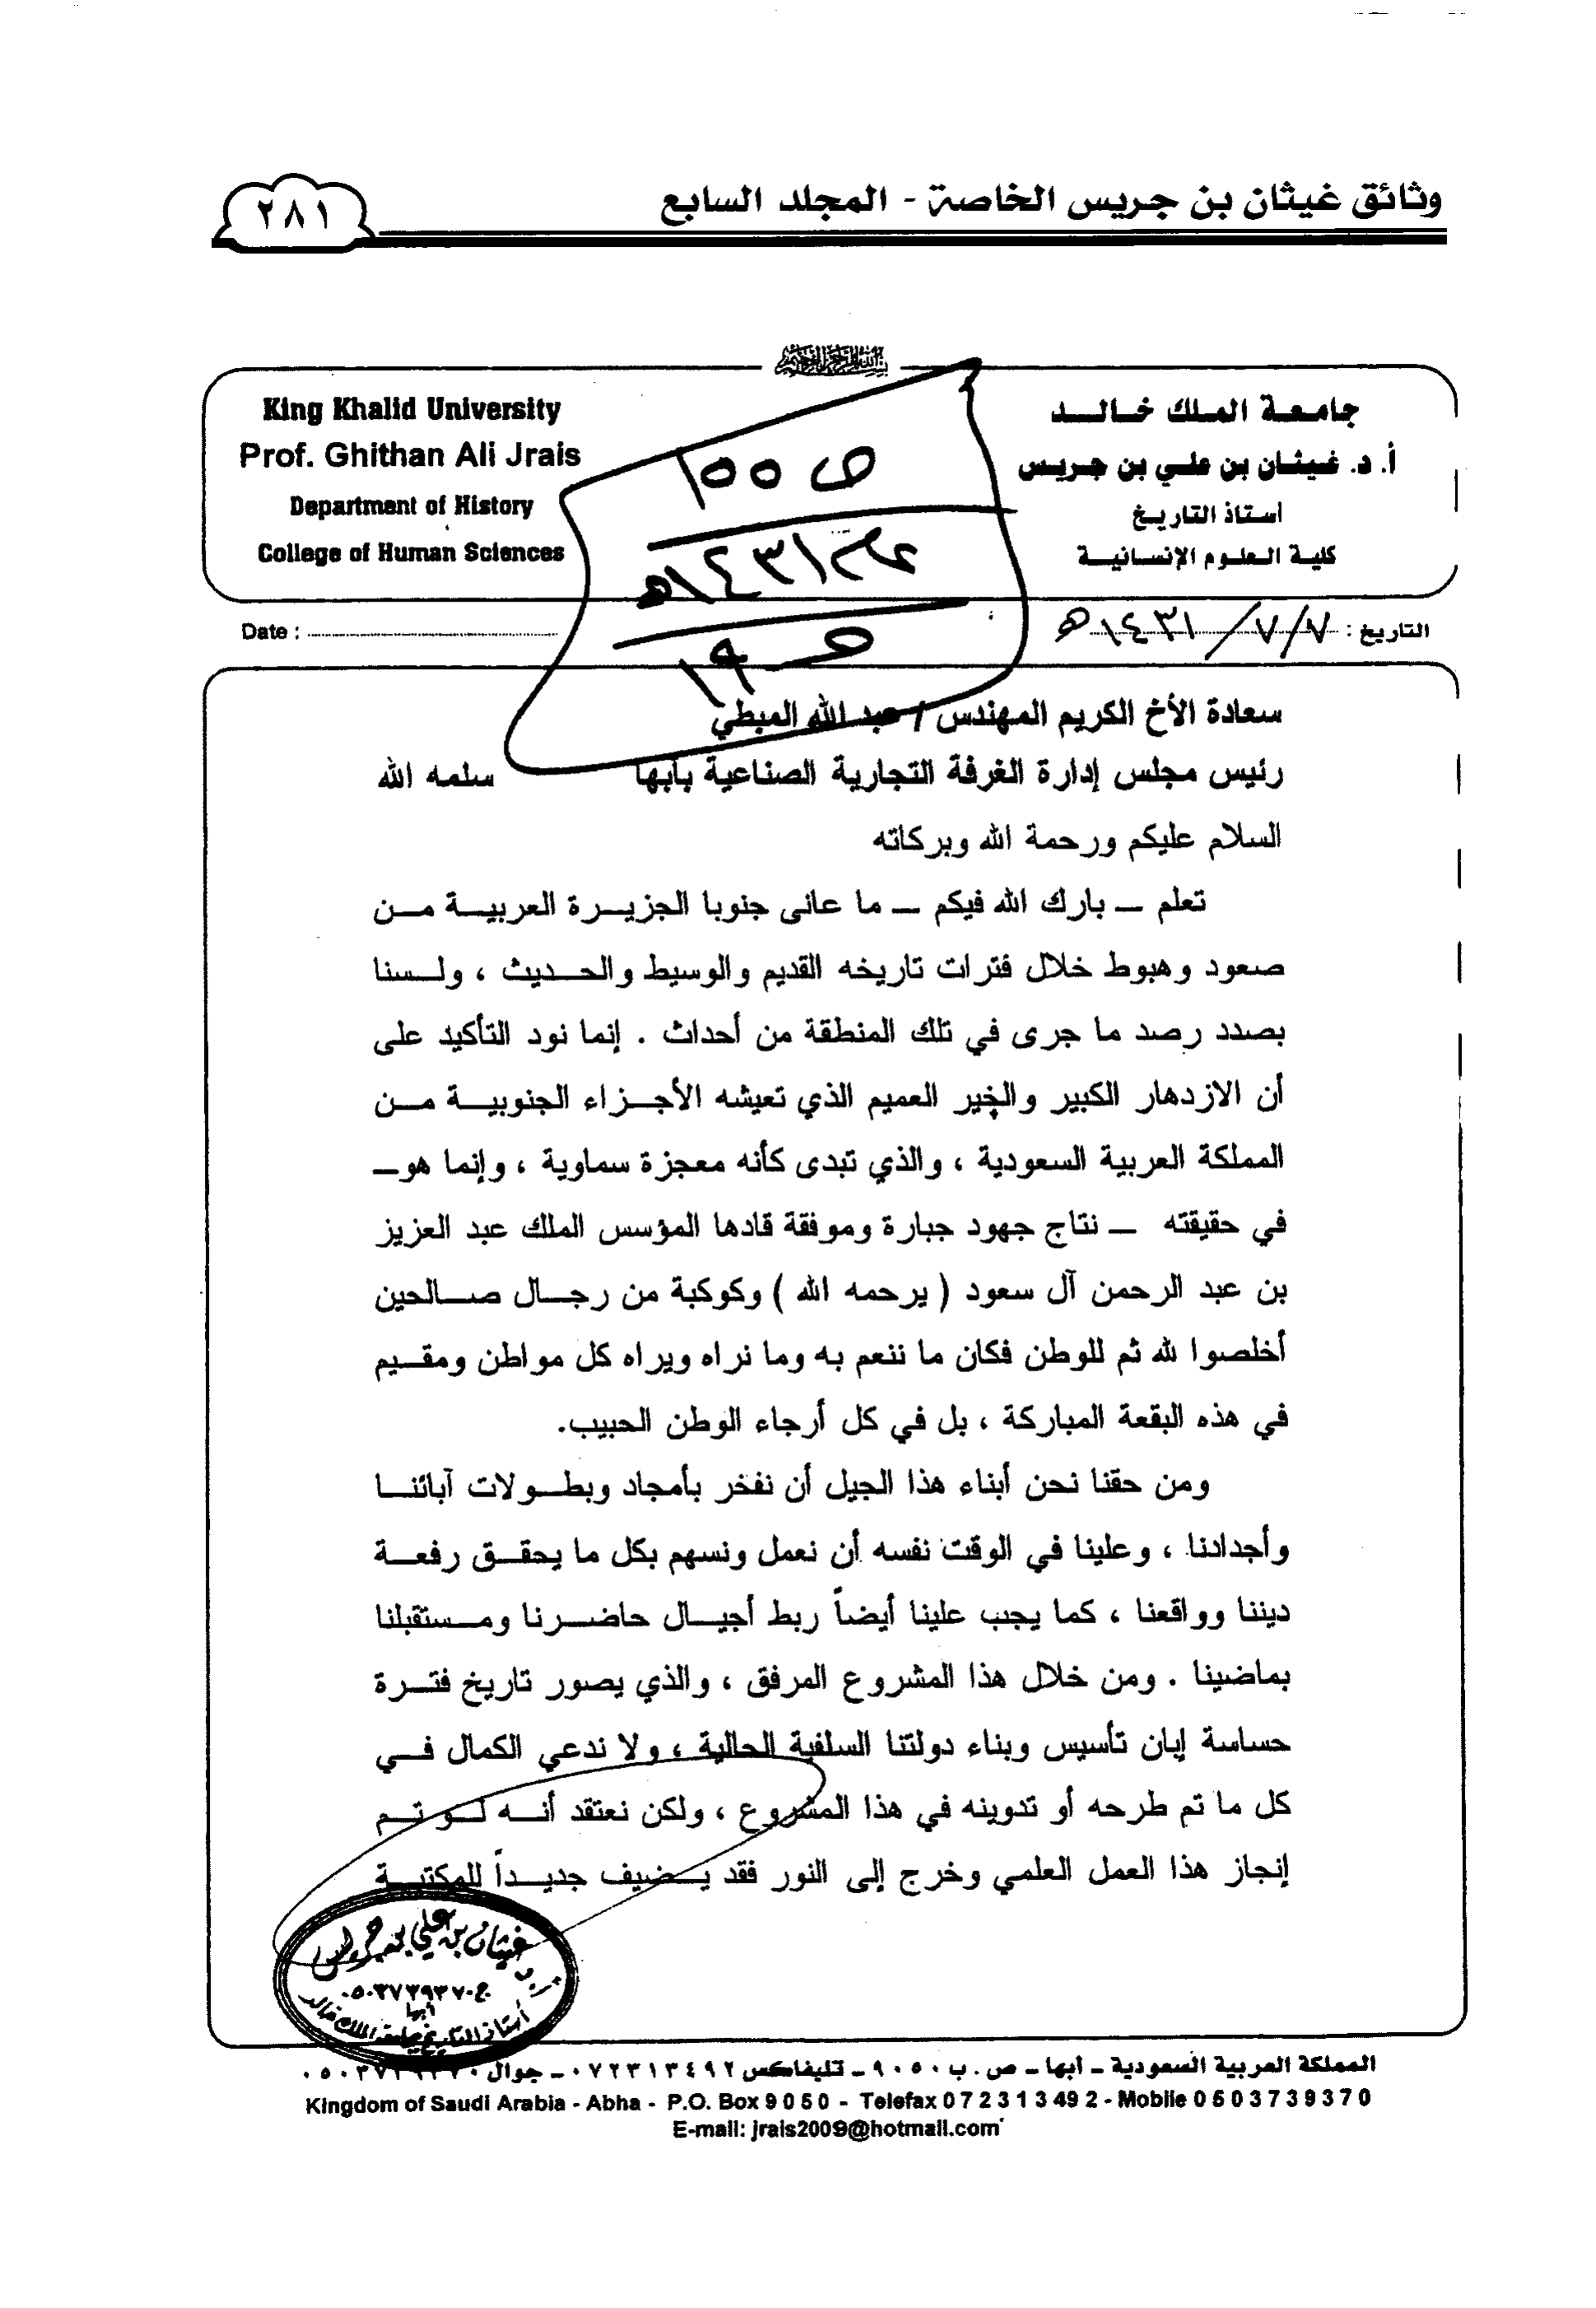 وثائق غيثان بن جريس الخاصة - المجلد السابع
٢٨١
بسم الله الرحمن الرحيم
جامعة الملك خالد
أ. د. غيثان بن علي بن جريس
أستاذ التاريخ
كلية العلوم الإنسانية
King Khalid University
Prof. Ghithan Ali Jrais
Department of History
College of Human Sciences
ص ١٥٥
١٤٣١هـ
١٩
التاريخ : ٧/٧/١٤٣١هـ
Date :
سعادة الأخ الكريم المهندس / عبد الله المبطي
رئيس مجلس إدارة الغرفة التجارية الصناعية بأبها سلمه الله
السلام عليكم ورحمة الله وبركاته
تعلم – بارك الله فيكم – ما عانى جنوبا الجزيرة العربية من
صعود وهبوط خلال فترات تاريخه القديم والوسيط والحديث ، ولسنا
بصدد رصد ما جرى في تلك المنطقة من أحداث . إنما نود التأكيد على
أن الازدهار الكبير والخير العميم الذي تعيشه الأجزاء الجنوبية من
المملكة العربية السعودية ، والذي تبدى كأنه معجزة سماوية ، وإنما هو–
في حقيقته – نتاج جهود جبارة وموفقة قادها المؤسس الملك عبد العزيز
بن عبد الرحمن آل سعود ( يرحمه الله ) وكوكبة من رجال صالحين
أخلصوا لله ثم للوطن فكان ما ننعم به وما نراه ويراه كل مواطن ومقيم
في هذه البقعة المباركة ، بل في كل أرجاء الوطن الحبيب.
ومن حقنا نحن أبناء هذا الجيل أن نفخر بأمجاد وبطولات آبائنا
وأجدادنا ، وعلينا في الوقت نفسه أن نعمل ونسهم بكل ما يحقق رفعة
ديننا وواقعنا ، كما يجب علينا أيضاً ربط أجيال حاضرنا ومستقبلنا
بماضينا . ومن خلال هذا المشروع المرفق ، والذي يصور تاريخ فترة
حساسة إبان تأسيس وبناء دولتنا السلفية الحالية ، ولا ندعي الكمال في
كل ما تم طرحه أو تدوينه في هذا المشروع ، ولكن نعتقد أنه لو تم
إنجاز هذا العمل العلمي وخرج إلى النور فقد يضيف جديداً للمكتبة
غيثان بن علي بن جريس
ج ٠٥٠٣٧٣٩٣٧٠
أبها
أستاذ التاريخ بجامعة الملك خالد
المملكة العربية السعودية – أبها – ص . ب ٩٠٥٠ – تليفاكس ٠٧٢٣١٣٤٩٢ – جوال ٠٥٠٣٧٣٩٣٧٠
Kingdom of Saudi Arabia - Abha - P.O. Box 9050 - Telefax 072313492 - Mobile 0503739370
E-mail: jrais2009@hotmail.com